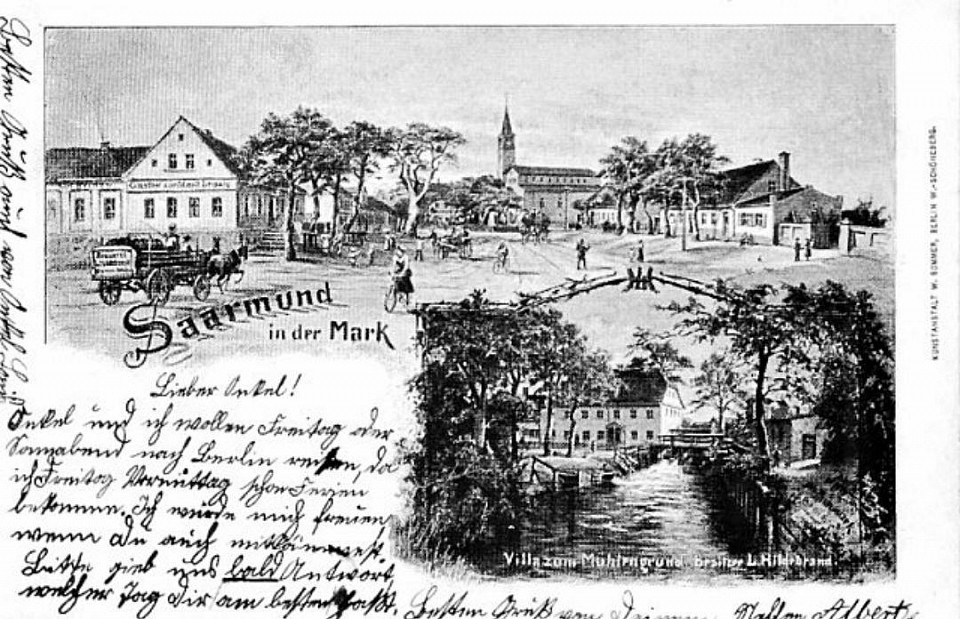 Saarmund
in der Mark
Lieber Onkel!
Onkel und ich wollen Freitag oder
Sonnabend nach Berlin reisen, da
ich Freitag Vormittag schon Ferien
bekomme. Ich würde mich freuen
wenn du auch mitkönntest.
Bitte gieb uns bald Antwort,
welcher Tag dir am besten paßt.
Besten Gruß von Deinem Neffen Albert
Besten Gruß auch von
Villa zum Mühlengrund. Besitzer L. Hilderbrand.
KUNSTANSTALT W. SOMMER, BERLIN W.-SCHÖNEBERG.